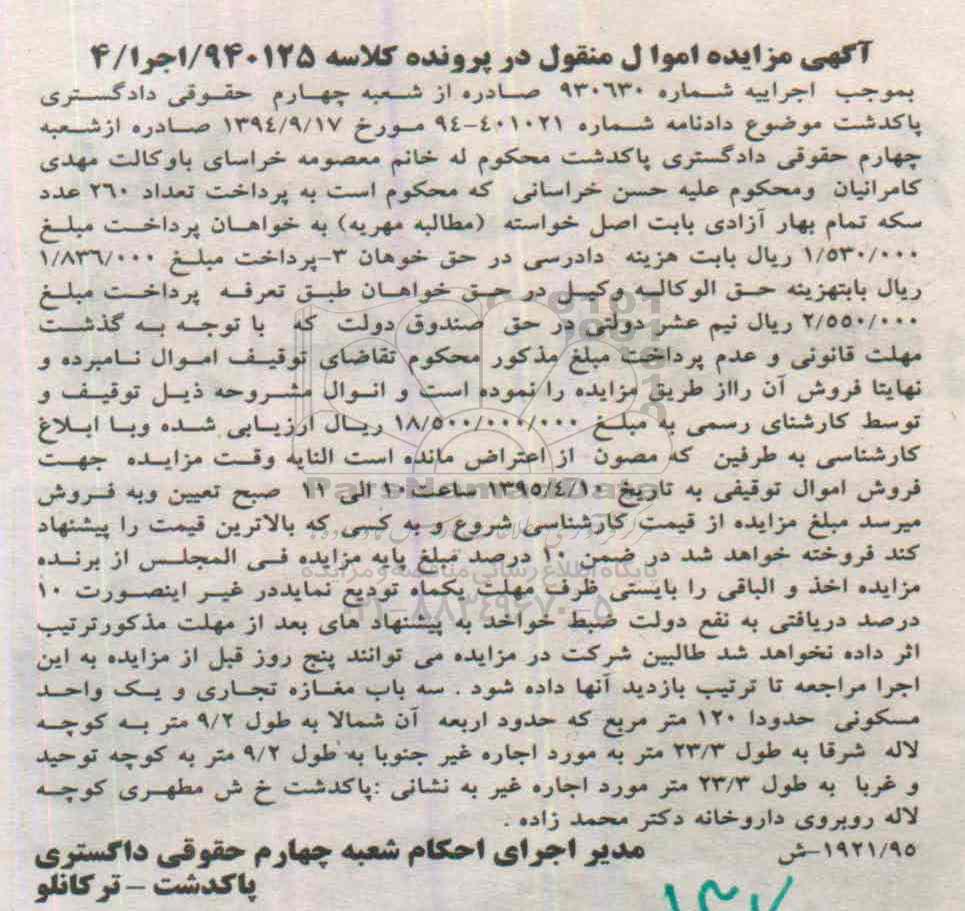 آگهی مزایده اموا ل منقول در پرونده کلاسه ۹۴۰۱۲۵/اجرا/۴
بموجب اجراییه شماره ۹۳۰۶۳۰ صادره از شعبه چهارم حقوقی دادگستری
پاکدشت موضوع دادنامه شماره ۴۰۱۰۲۱-۹۴ مورخ ۱۳۹۴/۹/۱۷ صادره ازشعبه
چهارم حقوقی دادگستری پاکدشت محکوم له خانم معصومه خراسای باوکالت مهدی
کامرانیان ومحکوم علیه حسن خراسانی که محکوم است به پرداخت تعداد ۲۶۰ عدد
سکه تمام بهار آزادی بابت اصل خواسته (مطالبه مهریه) به خواهان پرداخت مبلغ
۱/۵۳۰/۰۰۰ ریال بابت هزینه دادرسی در حق خوهان ۳-پرداخت مبلغ ۱/۸۳۶/۰۰۰
ریال بابتهزینه حق الوکاله وکیل در حق خواهان طبق تعرفه پرداخت مبلغ
۲/۵۵۰/۰۰۰ ریال نیم عشر دولتی در حق صندوق دولت که با توجه به گذشت
مهلت قانونی و عدم پرداخت مبلغ مذکور محکوم تقاضای توقیف اموال نامبرده و
نهایتا فروش آن رااز طریق مزایده را نموده است و انوال مشروحه ذیل توقیف و
توسط کارشنای رسمی به مبلغ ۱۸/۵۰۰/۰۰۰/۰۰۰ ریال ارزیابی شده وبا ابلاغ
کارشناسی به طرفین که مصون از اعتراض مانده است النایه وقت مزایده جهت
فروش اموال توقیفی به تاریخ ۱۳۹۵/۴/۱۰ ساعت ۱۰ الی ۱۱ صبح تعیین وبه فروش
میرسد مبلغ مزایده از قیمت کارشناسی شروع و به کسی که بالاترین قیمت را پیشنهاد
کند فروخته خواهد شد در ضمن ۱۰ درصد مبلغ پایه مزایده فی المجلس از برنده
مزایده اخذ و الباقی را بایستی ظرف مهلت یکماه تودیع نمایددر غیر اینصورت ۱۰
درصد دریافتی به نفع دولت ضبط خواخد به پیشنهاد های بعد از مهلت مذکورترتیب
اثر داده نخواهد شد طالبین شرکت در مزایده می توانند پنج روز قبل از مزایده به این
اجرا مراجعه تا ترتیب بازدید آنها داده شود . سه باب مغازه تجاری و یک واحد
مسکونی حدودا ۱۲۰ متر مربع که حدود اربعه آن شمالا به طول ۹/۲ متر به کوچه
لاله شرقا به طول ۲۳/۳ متر به مورد اجاره غیر جنوبا به طول ۹/۲ متر به کوچه توحید
و غربا به طول ۲۳/۳ متر مورد اجاره غیر به نشانی :پاکدشت خ ش مطهری کوچه
لاله روبروی داروخانه دکتر محمد زاده .
۱۹۲۱/۹۵-ش مدیر اجرای احکام شعبه چهارم حقوقی داگستری
پاکدشت - ترکانلو